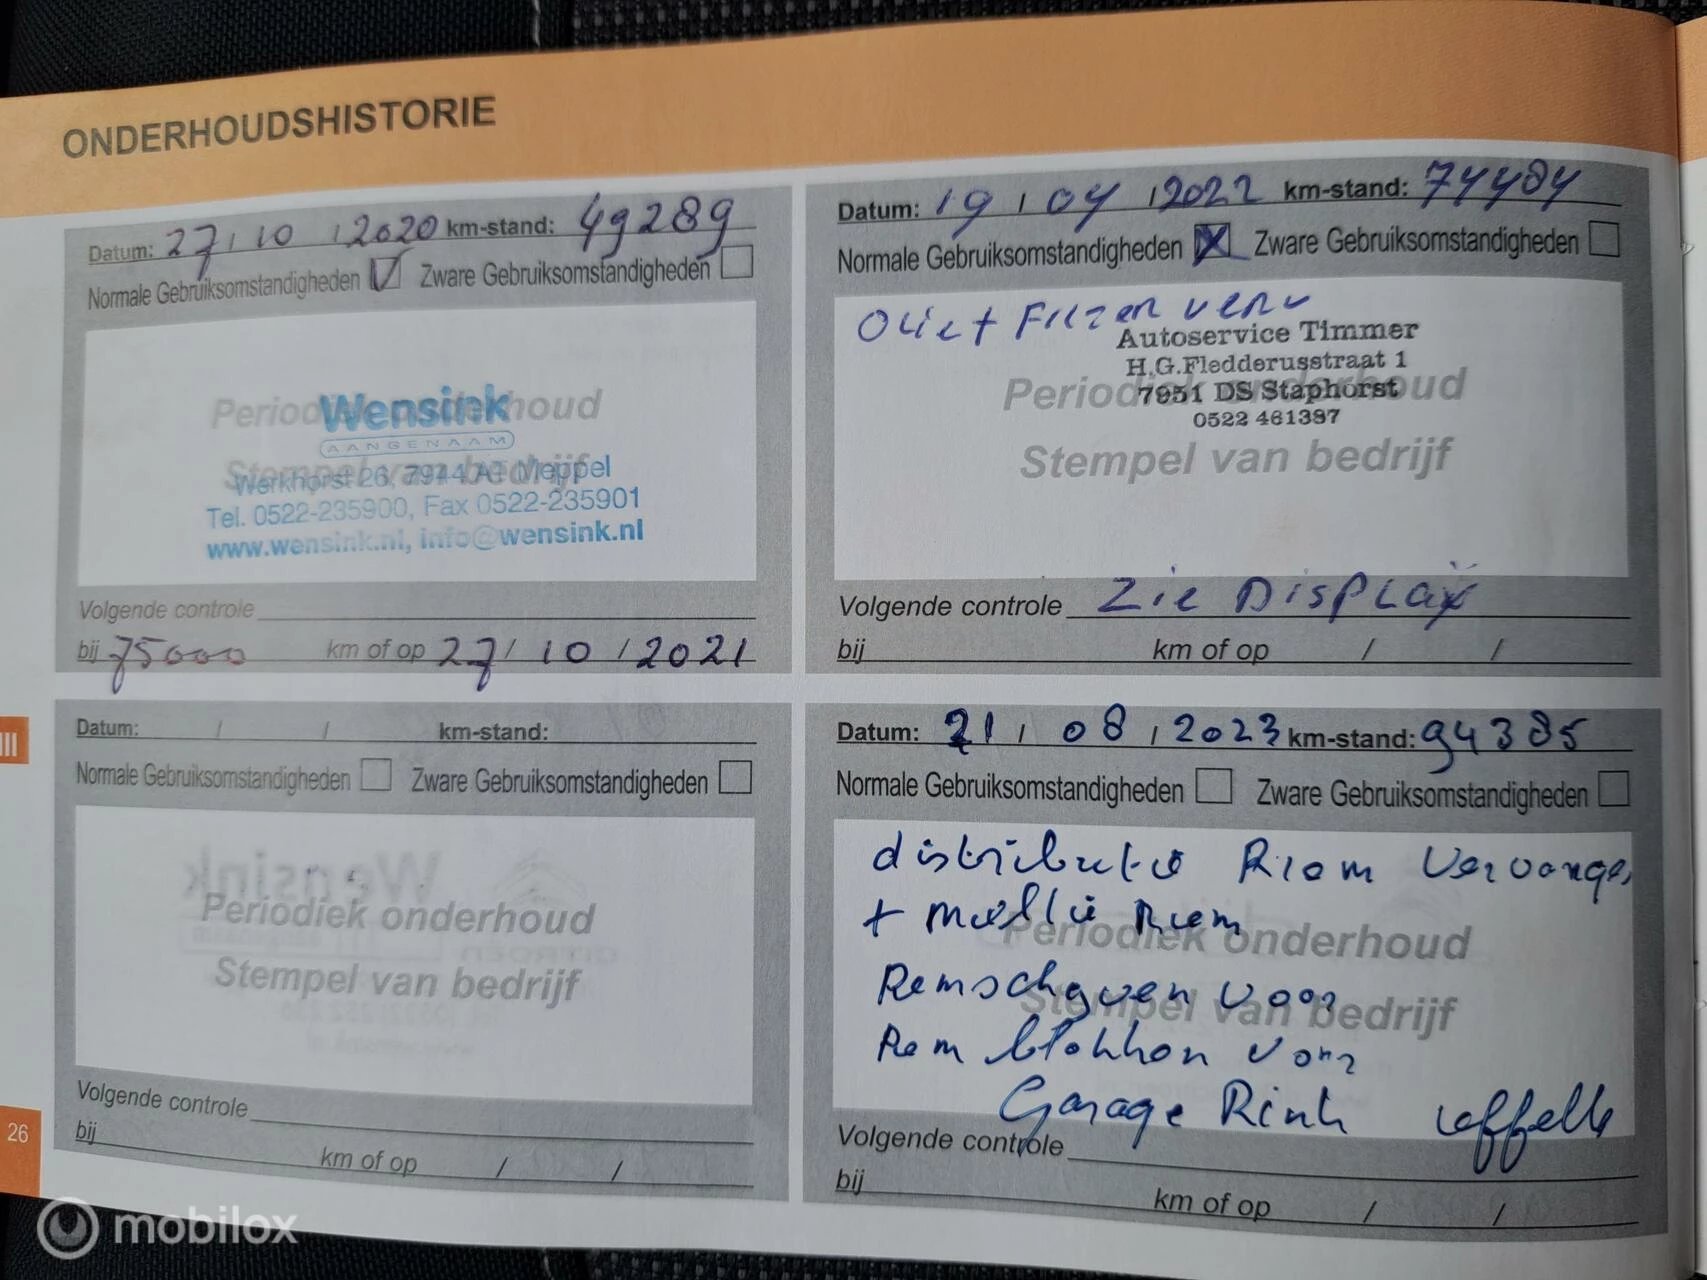 ONDERHOUDSHISTORIE
Datum: 27 / 10 / 2020 km-stand: 49289
Normale Gebruiksomstandigheden Zware Gebruiksomstandigheden
Periodiek onderhoud
Wensink
AANGENAAM
Stempel van bedrijf
Werkhorst 26, 7944 AT Meppel
Tel. 0522-235900, Fax 0522-235901
www.wensink.nl, info@wensink.nl
Volgende controle
bij 75000 km of op 27 / 10 / 2021
Datum: 19 / 04 / 2022 km-stand: 74484
Normale Gebruiksomstandigheden Zware Gebruiksomstandigheden
Olie + Filzen verv
Autoservice Timmer
H.G.Fledderusstraat 1
Periodiek onderhoud
7951 DS Staphorst
0522 461387
Stempel van bedrijf
Volgende controle Zie Display
bij km of op / /
Datum: / / km-stand:
Normale Gebruiksomstandigheden Zware Gebruiksomstandigheden
Wensink
Periodiek onderhoud
Stempel van bedrijf
Volgende controle
bij
km of op / /
Datum: 21 / 08 / 2023 km-stand: 94385
Normale Gebruiksomstandigheden Zware Gebruiksomstandigheden
distributie Riem Vervangen
+ multi Riem
Periodiek onderhoud
Remschyven voor
Stempel van bedrijf
Rem blokken voor
Garage Rink
Volgende controle
bij
km of op / /
III
26
mobilox